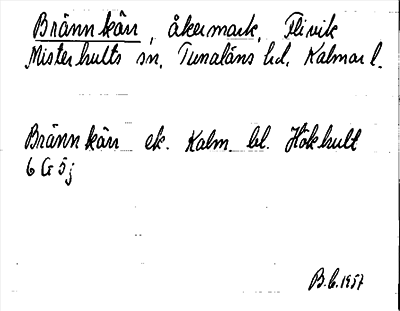 Brännkärr, åkermark, Flivik
Misterhults sn, Tunaläns hd, Kalmar l.
Brännkärr ek. Kalm. bl. Hökhult
6 G 5 j
B.C. 1957